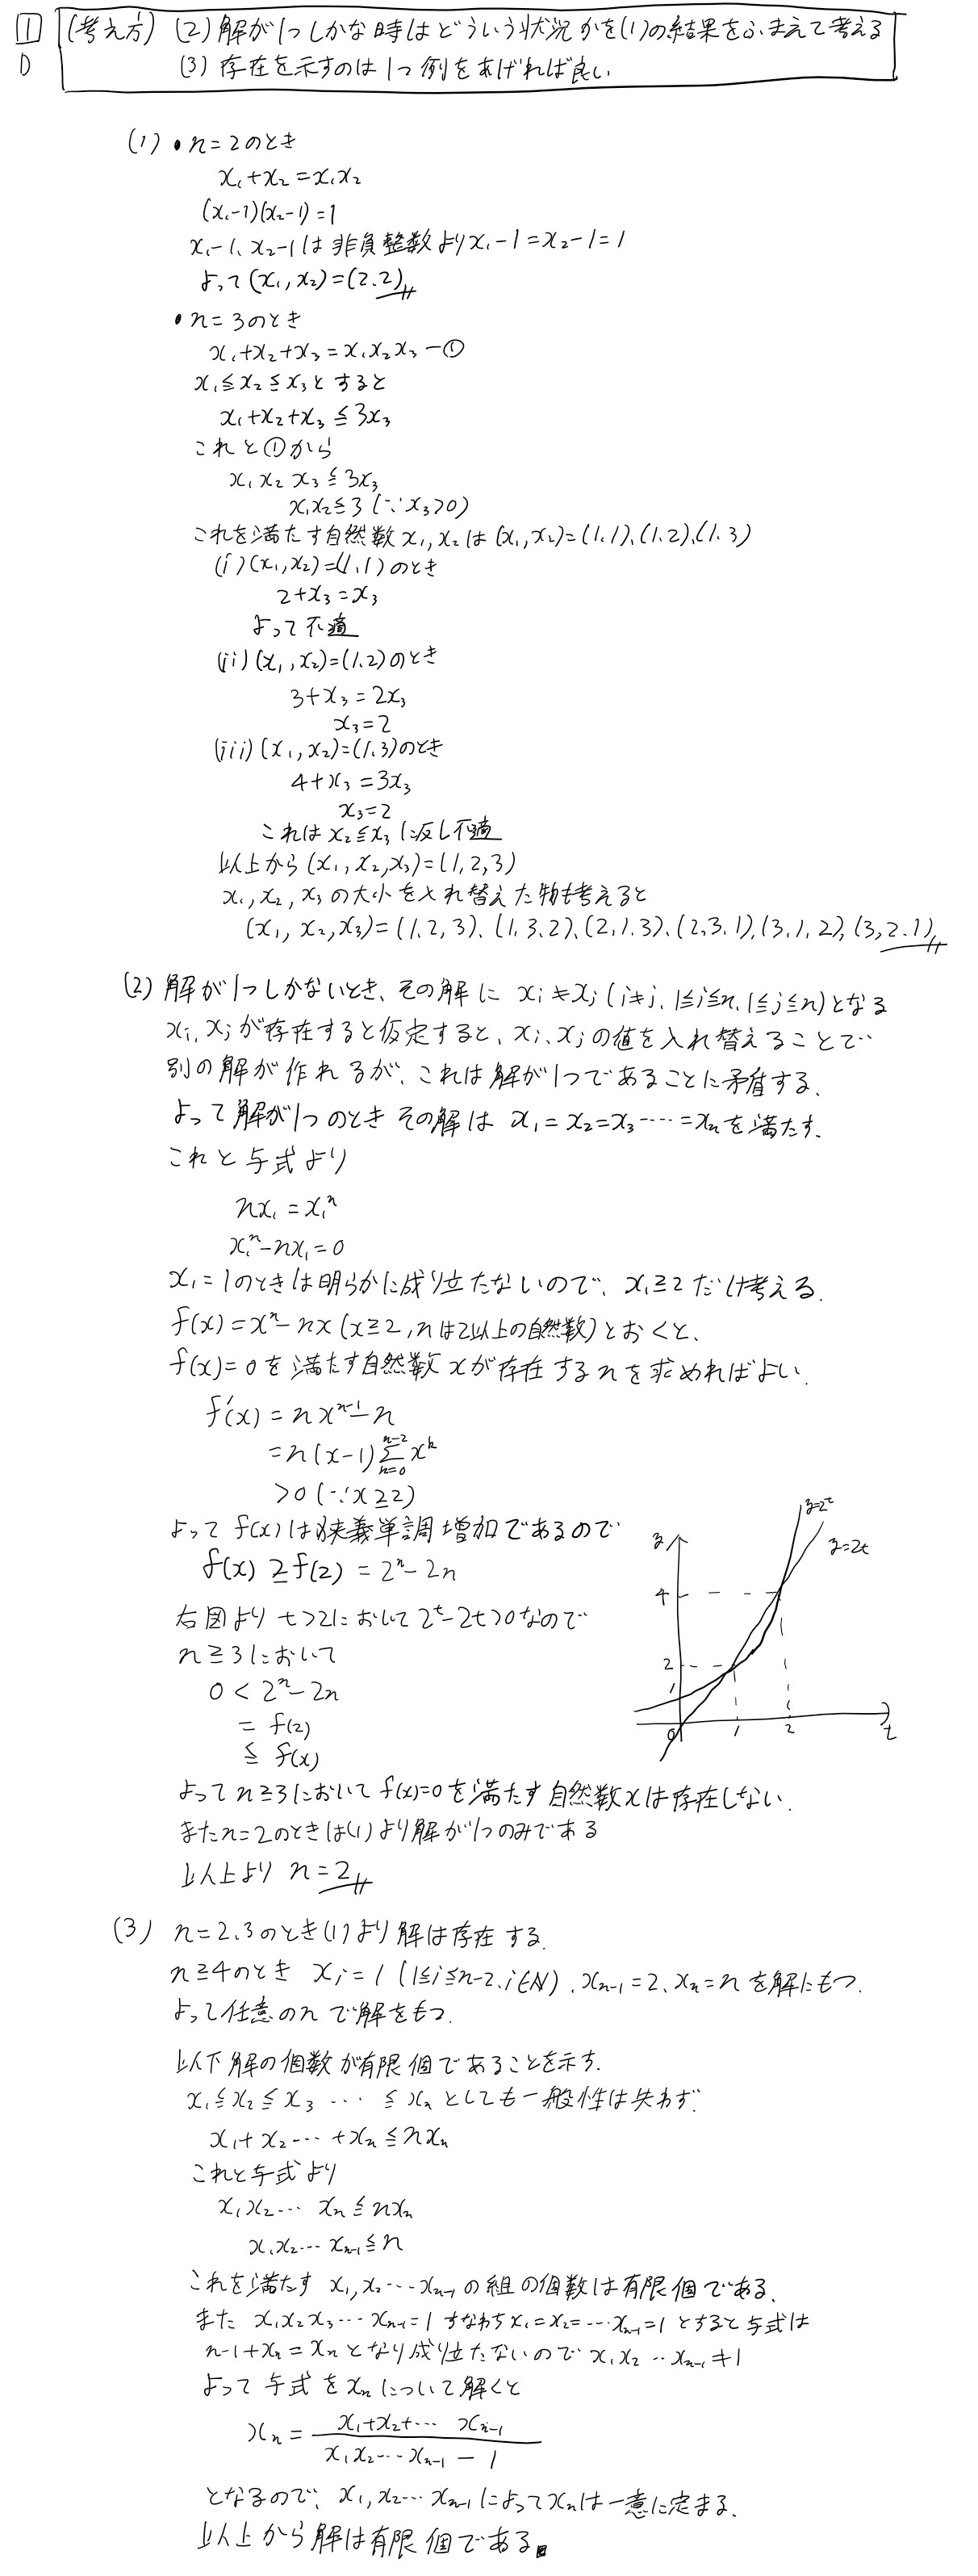 1 (考え方) (2) 解が1つしかな時はどういう状況かを(1)の結果をふまえて考える
D (3) 存在を示すのは1つ例をあげれば良い
(1) • n=2のとき
x₁+x₂=x₁x₂
(x₁-1)(x₂-1)=1
x₁-1、x₂-1は非負整数よりx₁-1=x₂-1=1
よって(x₁,x₂)=(2.2)
• n=3のとき
x₁+x₂+x₃=x₁x₂x₃ -①
x₁≦x₂≦x₃とすると
x₁+x₂+x₃≦3x₃
これと①から
x₁x₂x₃≦3x₃
x₁x₂≦3 (∵x₃>0)
これを満たす自然数x₁,x₂は(x₁,x₂)=(1.1)、(1.2)、(1.3)
(i)(x₁,x₂)=(1.1)のとき
2+x₃=x₃
よって不適
(ii)(x₁,x₂)=(1.2)のとき
3+x₃=2x₃
x₃=2
(iii)(x₁,x₂)=(1.3)のとき
4+x₃=3x₃
x₃=2
これはx₂≦x₃に反し不適
以上から(x₁,x₂,x₃)=(1,2,3)
x₁,x₂,x₃の大小を入れ替えた物も考えると
(x₁,x₂,x₃)=(1.2,3)、(1,3.2)、(2,1.3)、(2,3.1),(3,1,2),(3,2.1)
(2) 解が1つしかないとき、その解に xᵢ≠xⱼ (i≠j, 1≦i≦n, 1≦j≦n)となる
xᵢ、xⱼが存在すると仮定すると、xᵢ、xⱼの値を入れ替えることで
別の解が作れるが、これは解が1つであることに矛盾する.
よって解が1つのときその解は x₁=x₂=x₃…=xₙを満たす.
これと与式より
nx₁=x₁ⁿ
x₁ⁿ-nx₁=0
x₁=1のときは明らかに成り立たないので、x₁≧2だけ考える.
f(x)=xⁿ-nx(x≧2,nは2以上の自然数)とおくと、
f(x)=0を満たす自然数xが存在するnを求めればよい.
f'(x)=nxⁿ⁻¹-n
=n(x-1)Σxᵏ n-2 k=0
>0 (∵x≧2)
よって f(x)は狭義単調増加であるので
f(x)≧f(2)=2ⁿ-2n
右図より t>2において2ᵗ-2t>0なので
n≧3において
0<2ⁿ-2n
=f(2)
≦f(x)
y=2ᵗ
y=2t
y
4
2
1
0 1 2 t
よってn≧3においてf(x)=0を満たす自然数xは存在しない.
またn=2のときは(1)より解が1つのみである
以上より n=2
(3) n=2.3のとき(1)より解は存在する.
n≧4のとき xᵢ=1 (1≦i≦n-2.i∈N)、xₙ₋₁=2、xₙ=nを解にもつ.
よって任意のnで解をもつ.
以下解の個数が有限個であることを示す.
x₁≦x₂≦x₃…≦xₙとしても一般性は失わず.
x₁+x₂…+xₙ≦nxₙ
これと与式より
x₁x₂…xₙ≦nxₙ
x₁x₂…xₙ₋₁≦n
これを満たす x₁,x₂…xₙ₋₁の組の個数は有限個である.
また x₁x₂x₃…xₙ₋₁=1 すなわちx₁=x₂=…xₙ₋₁=1とすると与式は
n-1+xₙ=xₙとなり成り立たないので x₁x₂…xₙ₋₁≠1
よって与式をxₙについて解くと
xₙ=(x₁+x₂+…xₙ₋₁)/(x₁x₂…xₙ₋₁-1)
となるので、x₁,x₂…xₙ₋₁によってxₙは一意に定まる.
以上から解は有限個である■